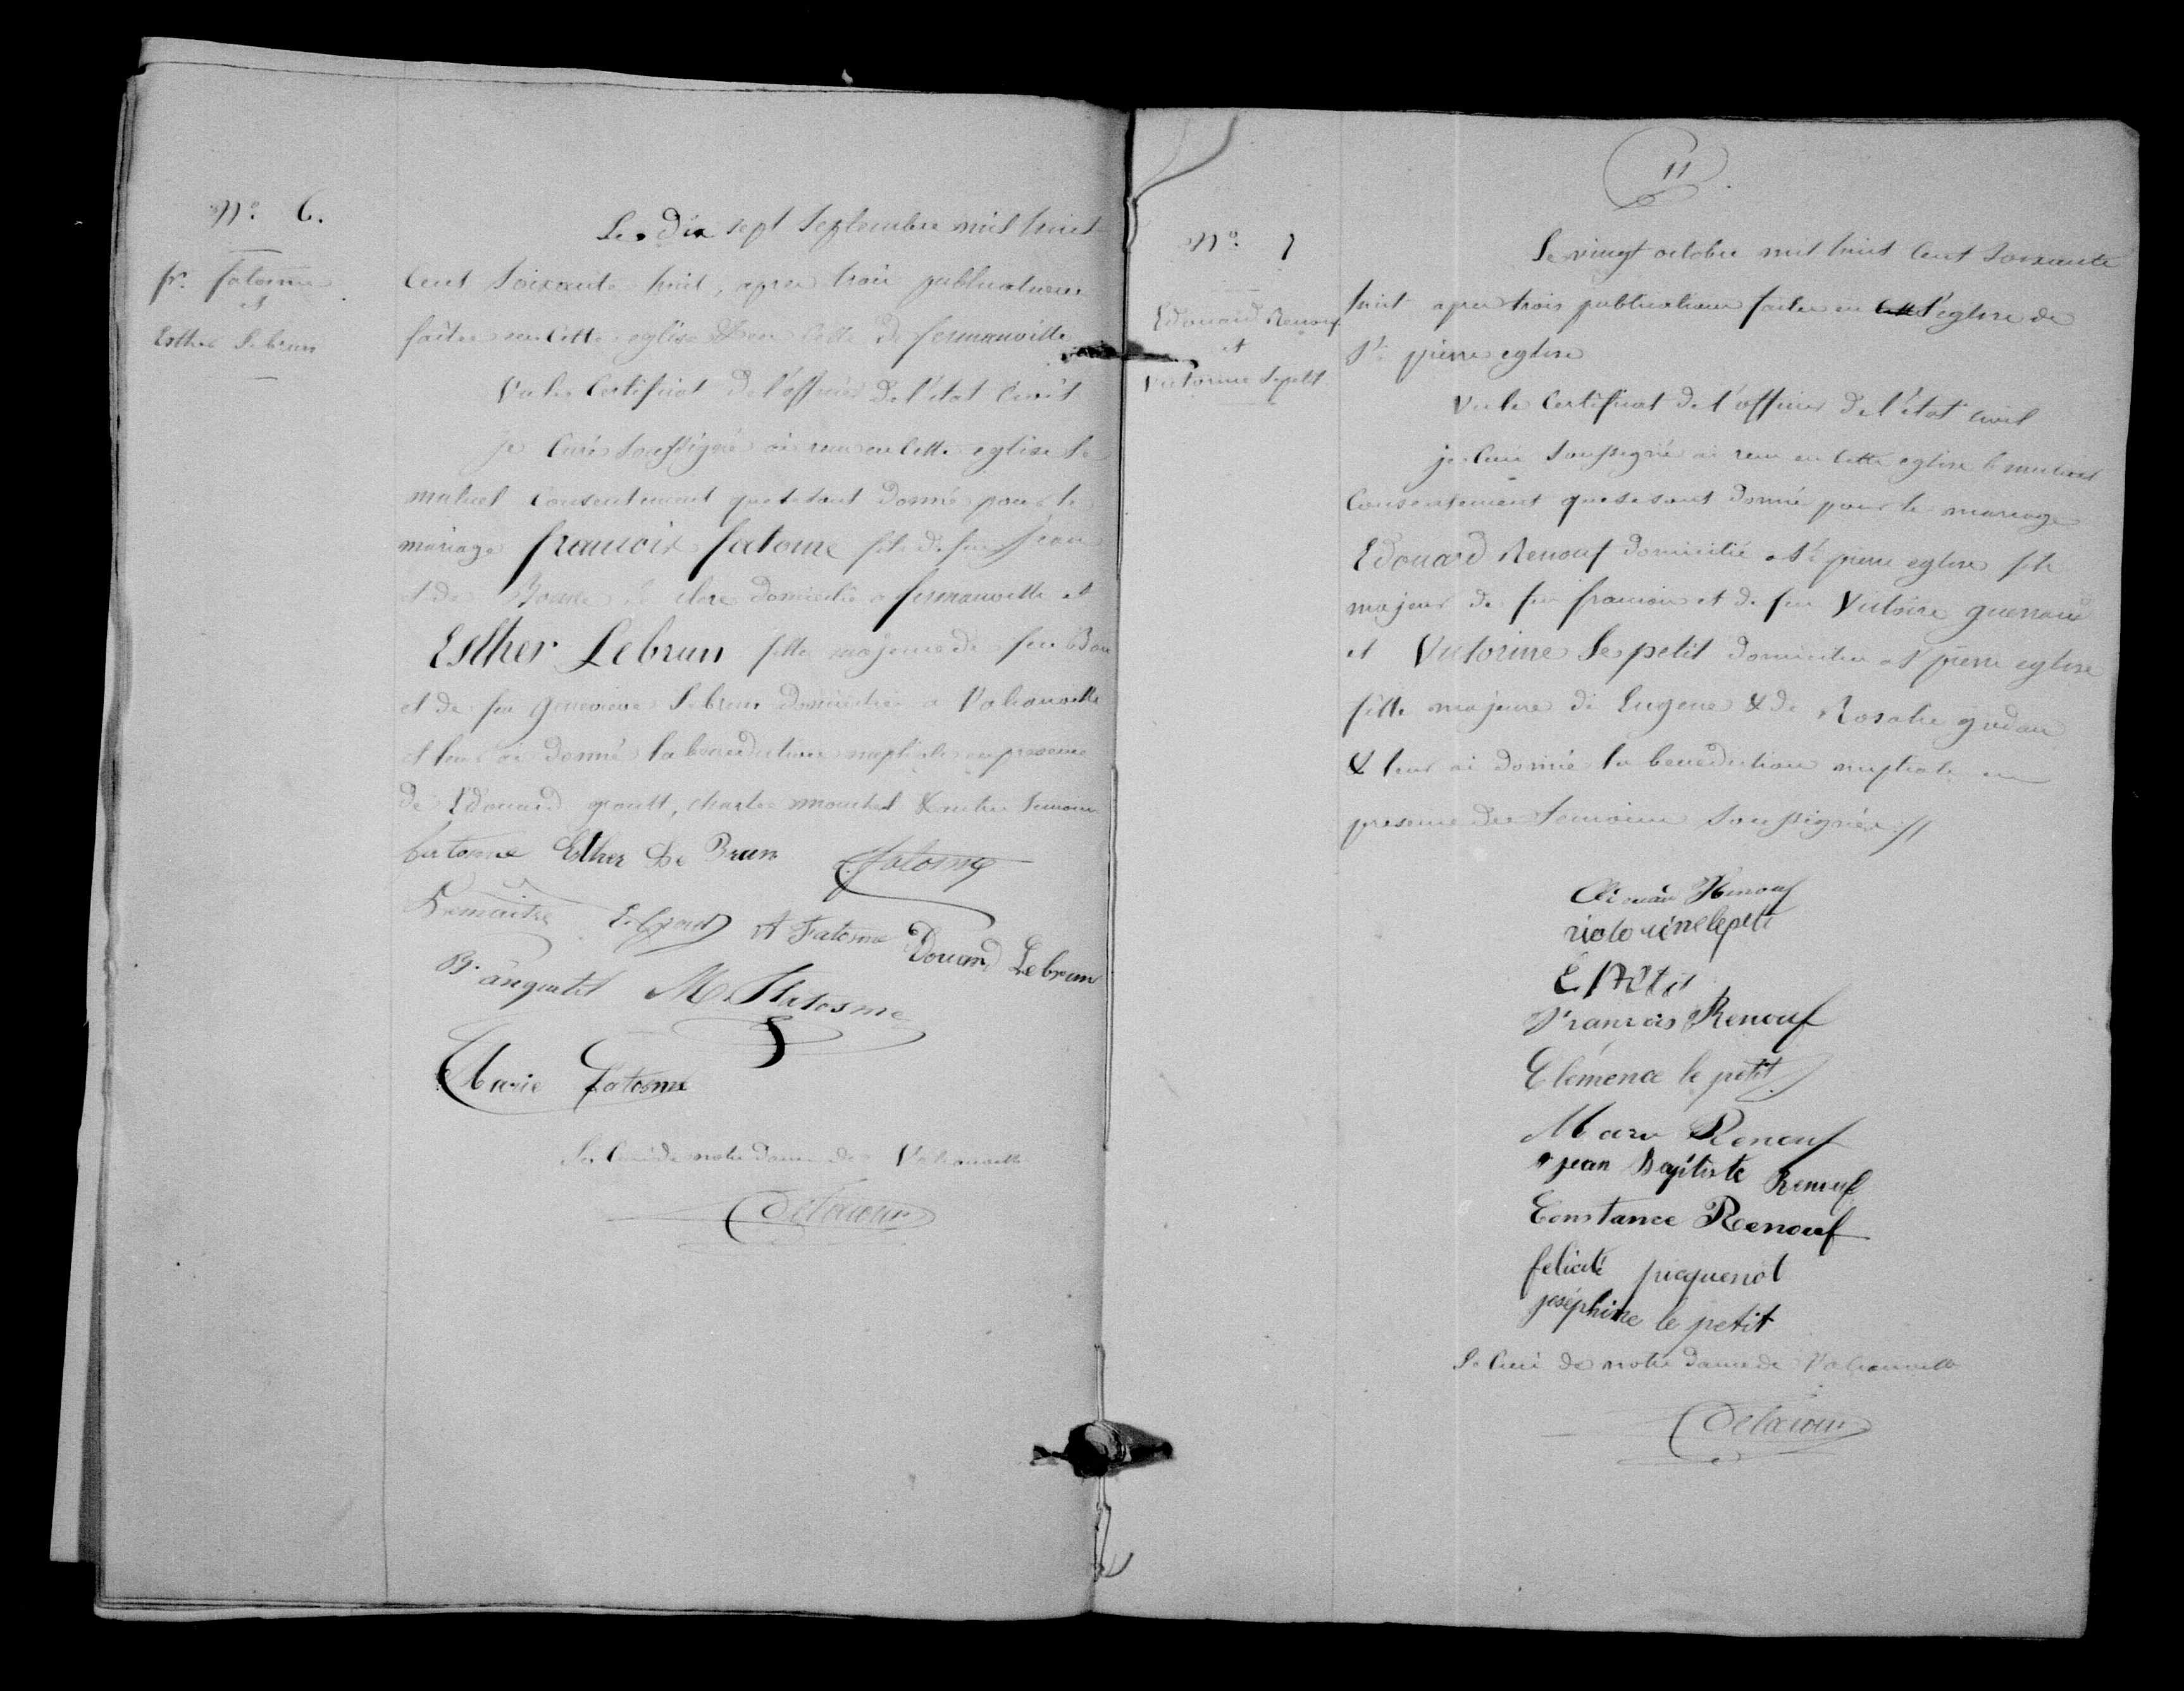 N° 6.
fr. fatome
et
Esther Lebrun
Le dix sept Septembre mil huit
Cent Soixante huit, apres trois publications
faites en Cette eglise & en Celle de fermanville
Vu le Certificat de l'officier de l'état Civil
je Curé Soussigné ai recu en Cette eglise le
mutuel Consentement que se sont donné pour le
mariage francois fatome fils de feu Jean
et de Bonne domicilié a fermanville et
Esther Lebrun fille majeure de feu Bon
et de feu genevieve Lebrun domiciliée a Valcanville
et leur ai donné la benediction nuptiale en presence
de Edouard groult, charles mouchel & autres temoins
fatome Esther Le Brun fatome
Lemaitre E. Groult A Fatome Douard Lebrun
B. anquetil M. Fatosme
Marie Fatosme
Le Curé de notre dame de Valcanville
Delacour
11
N° 7
Edouard Renouf
et
Victorine Lepetit
Le vingt octobre mil huit Cent Soixante
huit apres trois publications faites en l'eglise de
St pierre eglise
Vu le Certificat de l'officier de l'état Civil
je Curé Soussigné ai recu en Cette eglise le mutuel
Consentement que se sont donné pour le mariage
Edouard Renouf domicilié a St pierre eglise fils
majeur de feu francois et de feu Victoire
et Victorine Lepetit domiciliée a St pierre eglise
fille majeure de Eugene & de Rosalie
& leur ai donné la benediction nuptiale en
presence des temoins Soussignés //
Renouf
victorine lepetit
E Petit
François Renouf
Clémence le petit
Marie Renouf
jean Baptiste Renouf
Constance Renouf
felicité picquenot
joséphine le petit
Le Curé de notre dame de Valcanville
Delacour